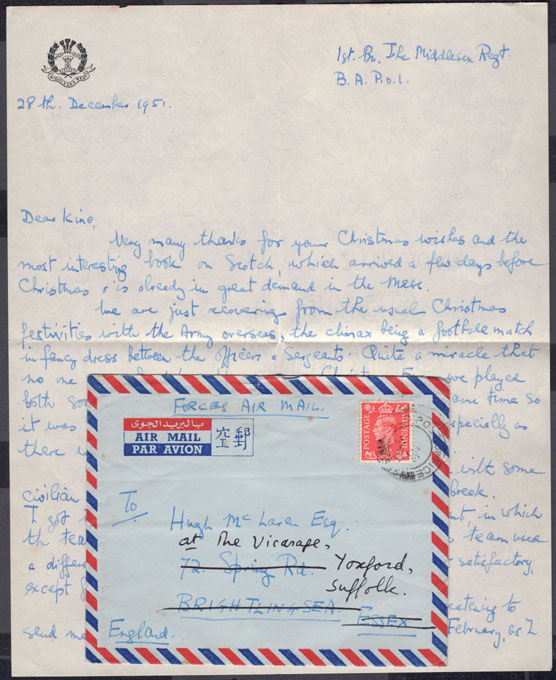 1st. Bn. The Middlesex Regt
B.A.P.O.1.
28th. December 1951.
Dear King,
Very many thanks for your Christmas wishes and the
most interesting book on Scotch, which arrived a few days before
Christmas & is already in great demand in the Mess.
We are just recovering from the usual Christmas
festivities with the Army overseas, the climax being a football match
in fancy dress between the Officers & Sergeants. Quite a miracle that
no one
both so
ame time so
it was
specially as
there w
with some
civilian
break.
I got
t, in which
the tea
team used
a differe
satisfactory,
except f
send me
February, as I
FORCES AIR MAIL.
بالبريد الجوى
AIR MAIL
PAR AVION
空郵
POSTAGE
To
Hugh McLaren Esq.
at The Vicarage,
72. Spring Rd.
Yoxford,
Suffolk.
BRIGHTLINGSEA.
ESSEX
England.